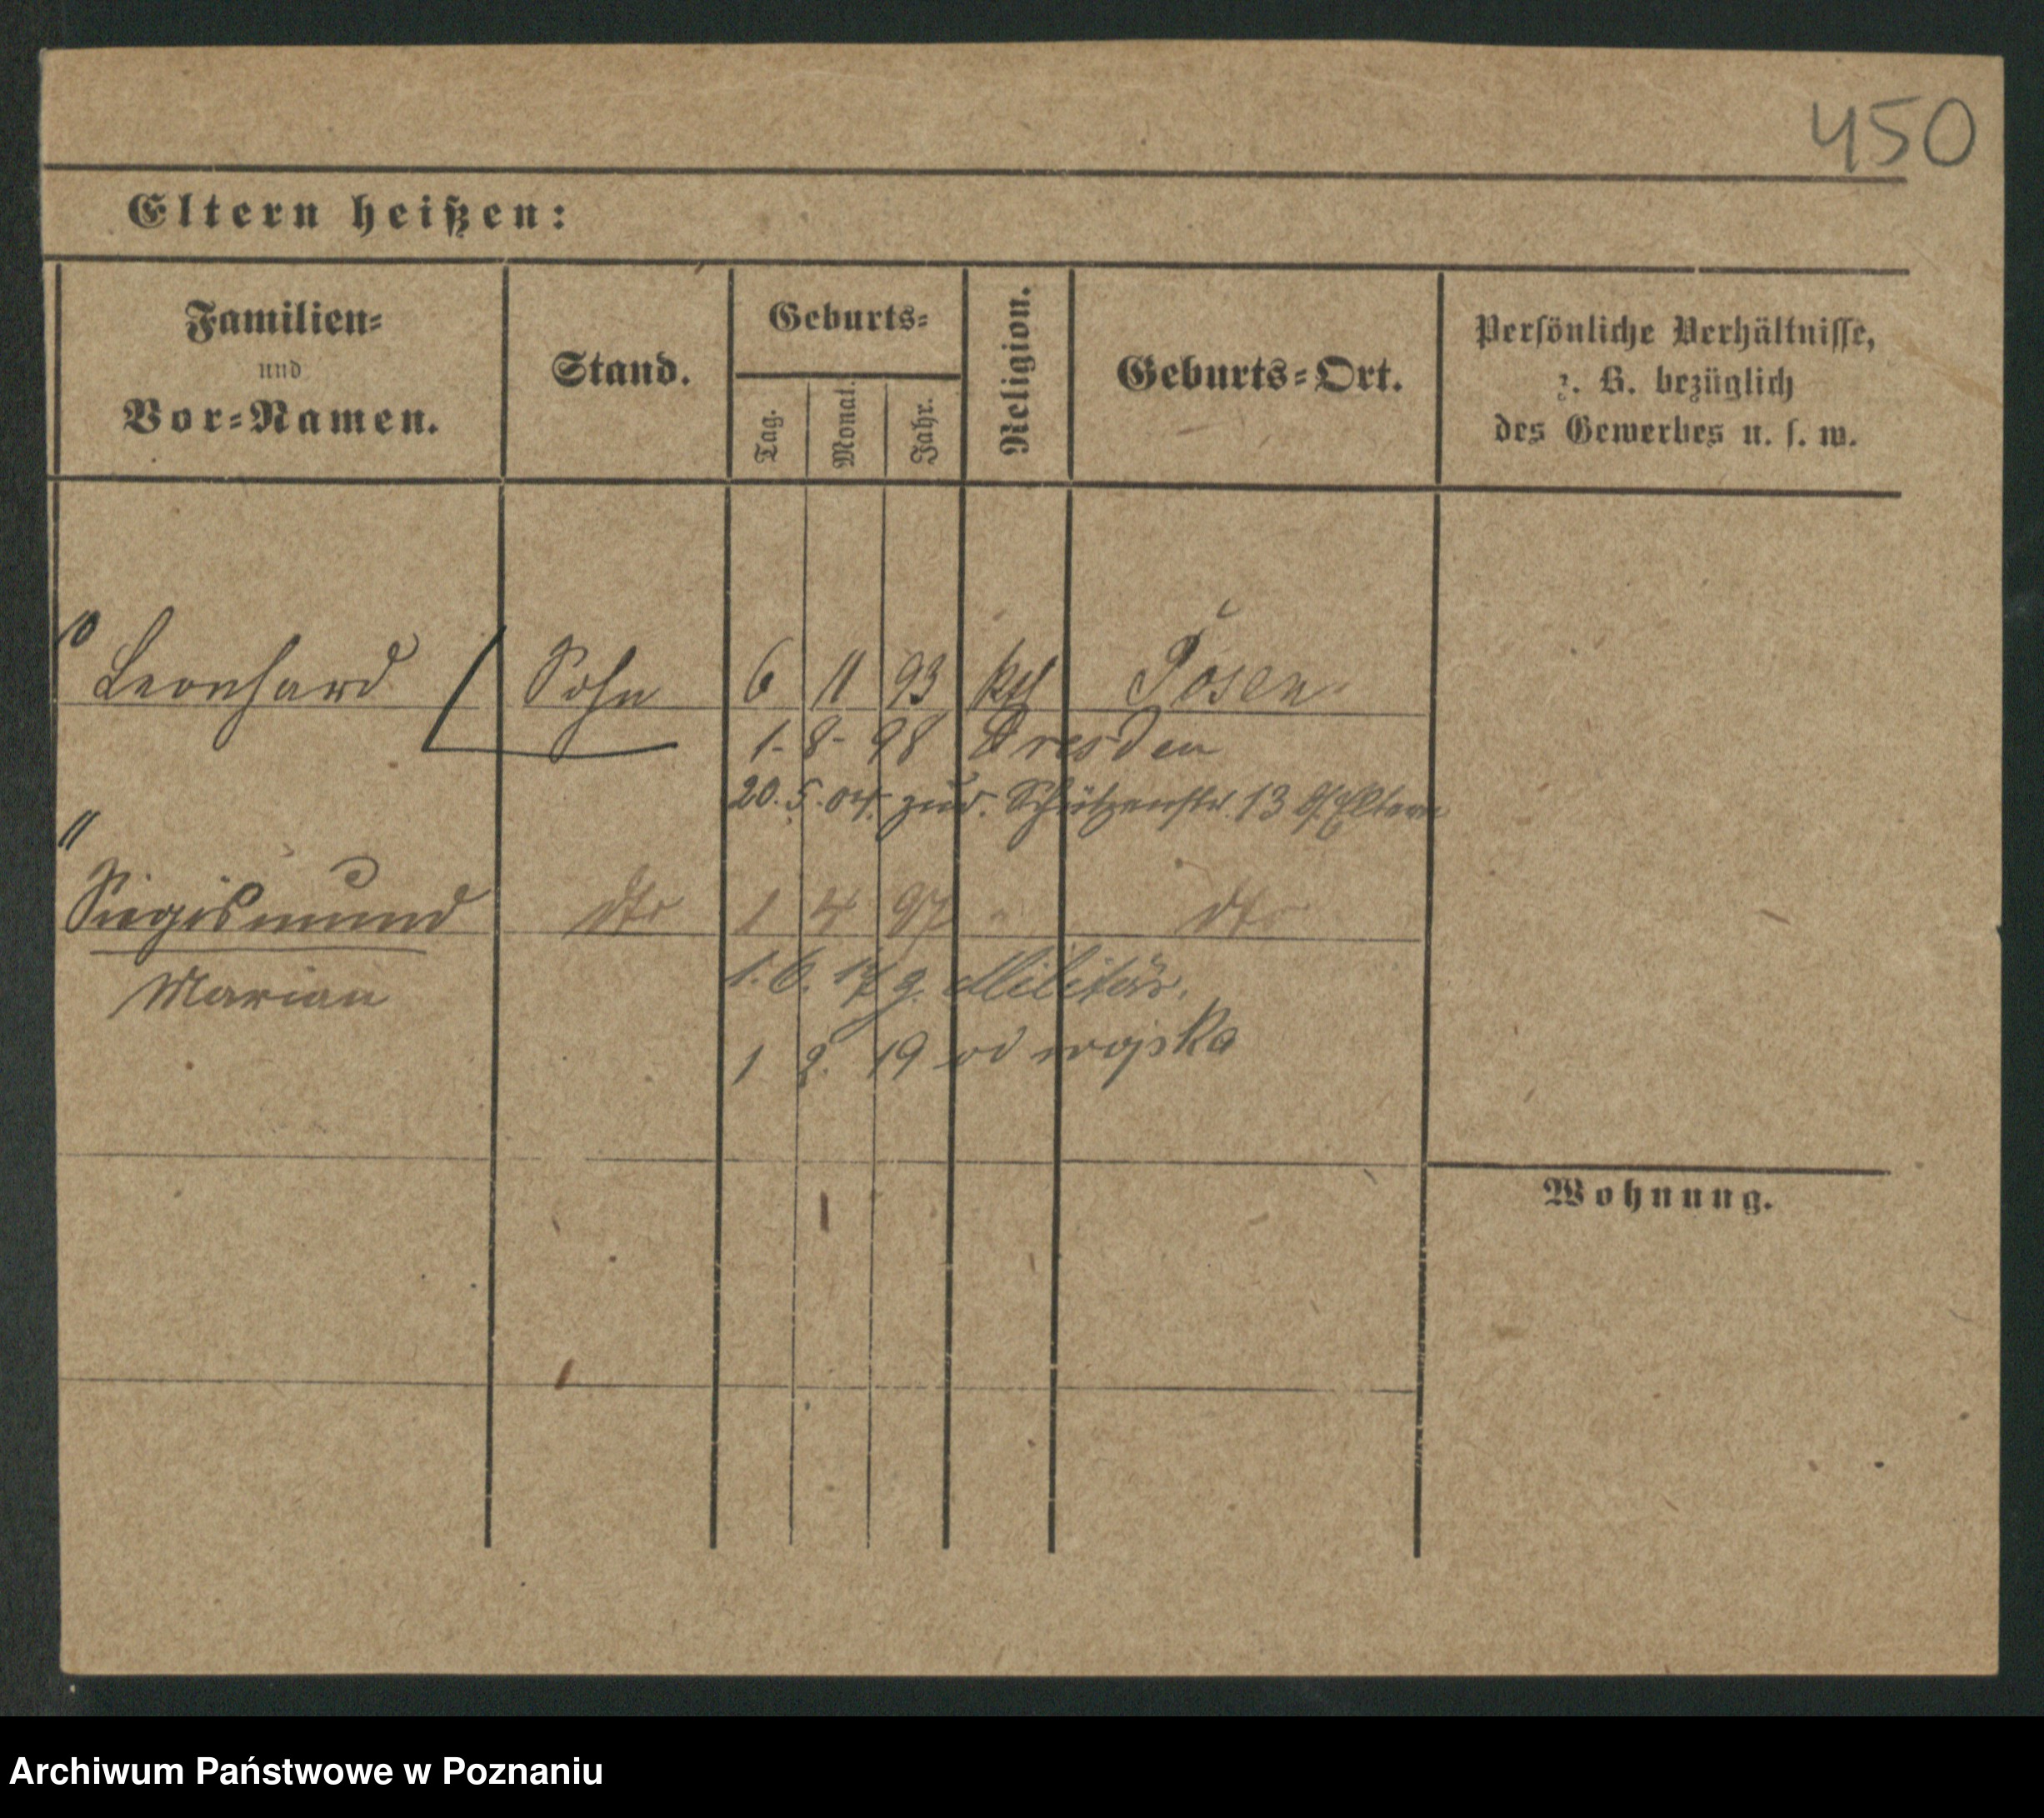 450
Eltern heißen:
Familien-
und
Vor-Namen.
Stand.
Geburts-
Tag.
Monat.
Jahr.
Religion.
Geburts-Ort.
Persönliche Verhältnisse,
z. B. bezüglich
des Gewerbes u. s. w.
10
Leonhard Sohn 6 11 93 kth Posen
1-8-98 Dresden
20.5.04. zur. Schützenstr. 13 Eltern
11
Siegismund dto 1 4 97 " dto
Marian 1.6.17 z. Militär.
1 2. 19 od wojska
Wohnung.
Archiwum Państwowe w Poznaniu